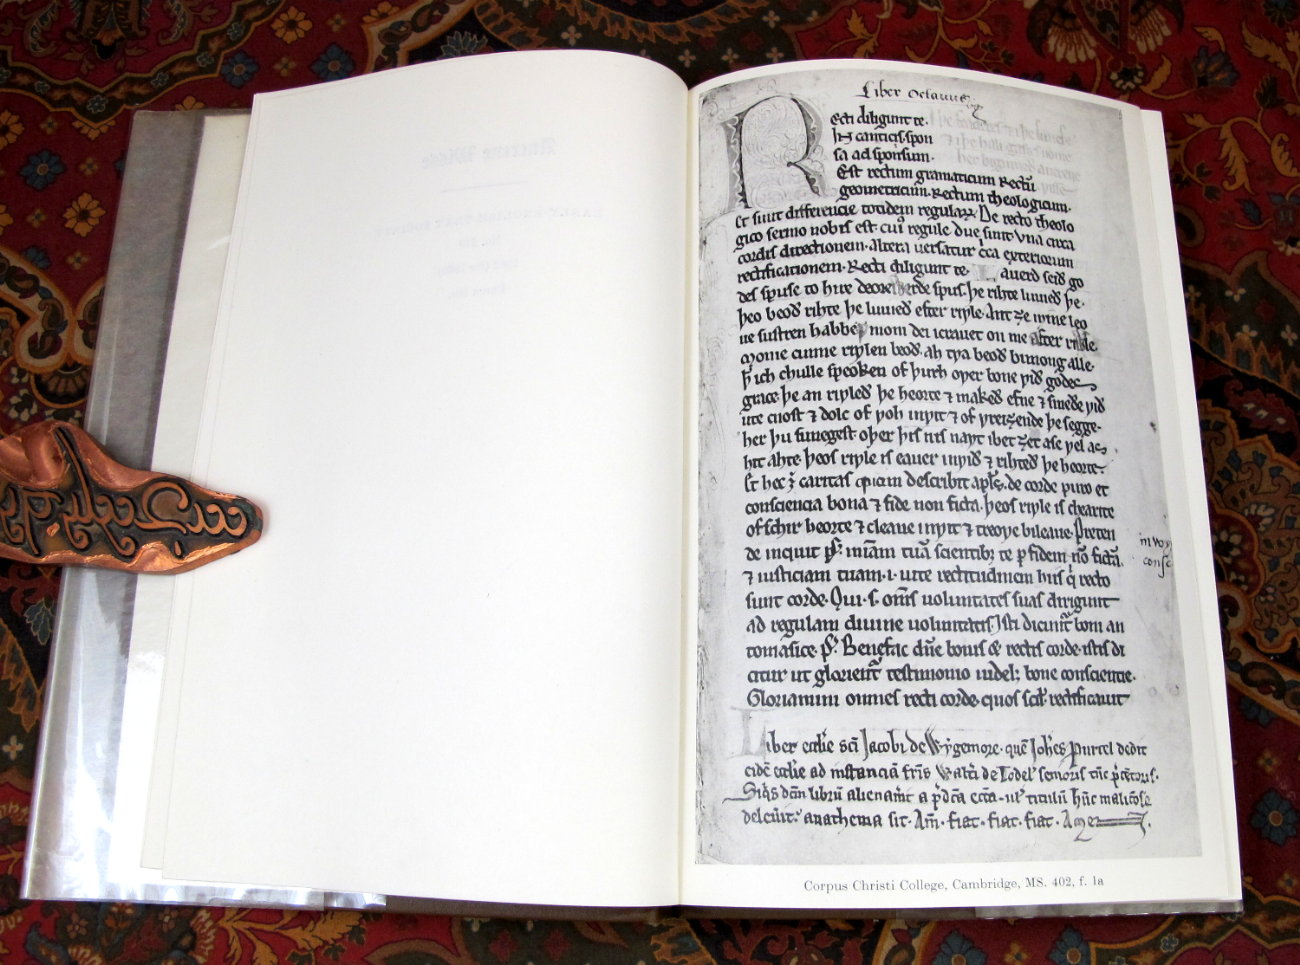 Liber Octauus
Recti diligunt te.
In canticis. spon
sa ad sponsum.
Est rectum gramaticum Rectū
geometricum. Rectum theologicum.
Et sunt differencie totidem regularꝝ. De recto theolo
gico sermo nobis est cuiꝰ regule due sunt. Vna circa
cordis directionem. altera uersatur c̄ca exteriorum
rectificationem. Recti diligunt te. Lauerd seið go
des spuse to hire deore spus. þe rihte luuieð þe.
þeo beoð rihte þe luuieð efter riƿle. Ant ȝe mine leo
ue sustren habbe moni dei icrauet on me after riƿle.
Monie cunne riƿlen beoð. ah tƿa beoð bimong alle.
ꝥ ich chulle speoken of þurh oƿer bone ƿið godes
grace. þe an riƿleð þe heorte ⁊ makeð efne ⁊ smeðe ƿið
ute cnost ⁊ dolc of ƿoh inƿit ⁊ of ƿreiȝende þe segge.
her þu sunegest oþer þis nis naƿt ibet ȝet ase ƿel as
hit ahte. þeos riƿle is eauer inƿið ⁊ rihteð þe heorte.
Et hec ÷ caritas quam describit apl̄s. de corde puro et
consciencia bona ⁊ fide non ficta. þeos riƿle is chearite
of schir heorte ⁊ cleane inƿit ⁊ treoƿe bileaue. Preten
de inquit p̄s. mīam tuā scientibꝫ te p fidem nō fictā.
⁊ iusticiam tuam .i. uite rectitudinem hiis q̄ recto
sunt corde. Qui .s. om̄s uoluntates suas dirigunt
ad regulam diuine uoluntatis. Isti dicunt̄ boni an
tomasice. p̄s. Benefac dn̄e bonis & rectis corde. istis di
citur ut glorient̄ testimonio uidelꝫ bone consciencie.
Gloriamini omnes recti corde. quos scil. rectificauit
Liber eccl̄ie sc̄i Jacobi de Wygemore. quē Joh̄es Purcel dedit
eidē eccl̄ie ad instanciā fr̄is Walt̄i de Lodel' senioris tūc p̄cētoris.
Siq̄s dc̄m librū alienau̇it a p̄dc̄a ecc̄a. ul' titulū hūc maliciose
deleuit. anathema sit. Am̄. fiat. fiat. fiat. Amen.
Corpus Christi College, Cambridge, MS. 402, f. 1a